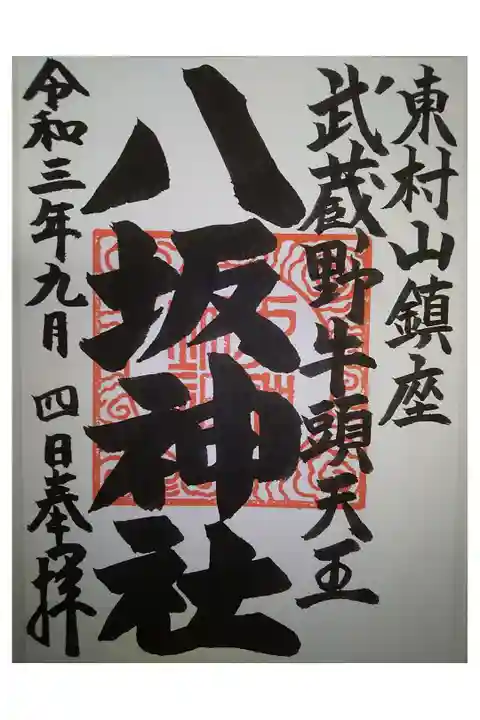 東村山鎮座
武蔵野牛頭天王
八坂神社
令和三年九月 四日奉拝